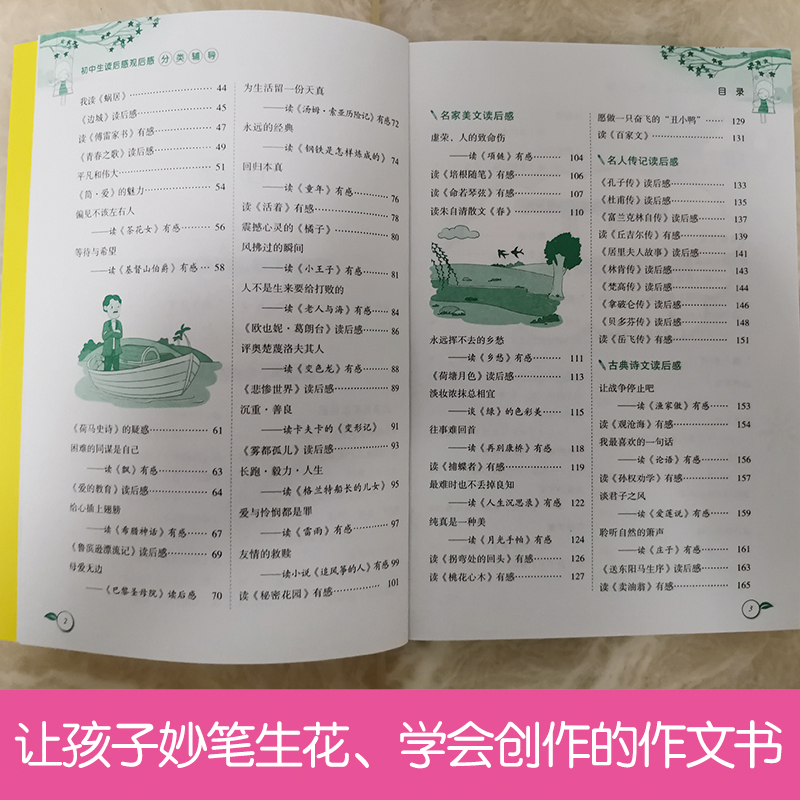 初中生读后感观后感 分类辅导
我读《蜗居》 44
《边城》读后感 45
读《傅雷家书》有感 47
《青春之歌》读后感 49
平凡和伟大 51
《简·爱》的魅力 54
偏见不该左右人
——读《茶花女》有感 56
等待与希望
——读《基督山伯爵》有感 58
《荷马史诗》的疑惑 61
困难的同谋是自己
——读《飘》有感 63
《爱的教育》读后感 64
给心插上翅膀
——读《希腊神话》有感 67
《鲁滨逊漂流记》读后感 69
母爱无边
——《巴黎圣母院》读后感 70
2
为生活留一份天真
——读《汤姆·索亚历险记》有感 72
永远的经典
——读《钢铁是怎样炼成的》 74
回归本真
——读《童年》有感 76
读《活着》有感 78
震撼心灵的《橘子》 80
风拂过的瞬间
——读《小王子》有感 81
人不是生来要给打败的
——读《老人与海》有感 84
《欧也妮·葛朗台》读后感 86
评奥楚蔑洛夫其人
——读《变色龙》有感 88
《悲惨世界》读后感 89
沉重·善良
——读卡夫卡的《变形记》 91
《雾都孤儿》读后感 93
长跑·毅力·人生
——读《格兰特船长的儿女》 95
爱与怜悯都是罪
——读《雷雨》有感 97
友情的救赎
——读小说《追风筝的人》有感 99
读《秘密花园》有感 101
目录
名家美文读后感
虚荣，人的致命伤
——读《项链》有感 104
读《培根随笔》有感 106
读《命若琴弦》有感 107
读朱自清散文《春》 110
永远挥不去的乡愁
——读《乡愁》有感 111
《荷塘月色》读后感 113
淡妆浓抹总相宜
——谈《绿》的色彩美 115
往事难回首
——读《再别康桥》有感 118
读《捕蝶者》有感 119
最难时也不丢掉良知
——读《人生沉思录》有感 122
纯真是一种美
——读《月光手帕》有感 124
读《拐弯处的回头》有感 126
读《桃花心木》有感 127
愿做一只奋飞的“丑小鸭” 129
读《百家文》 131
名人传记读后感
《孔子传》读后感 133
《杜甫传》读后感 135
《富兰克林自传》读后感 137
读《丘吉尔传》有感 139
《居里夫人故事》读后感 141
《林肯传》读后感 143
《梵高传》读后感 144
《拿破仑传》读后感 146
《贝多芬传》读后感 148
读《岳飞传》有感 151
古典诗文读后感
让战争停止吧
——读《渔家傲》有感 153
读《观沧海》有感 154
我最喜欢的一句话
——读《论语》有感 156
读《孙权劝学》有感 157
谈君子之风
——读《爱莲说》有感 159
聆听自然的箫声
——读《庄子》有感 161
《送东阳马生序》读后感 163
读《卖油翁》有感 165
3
让孩子妙笔生花、学会创作的作文书